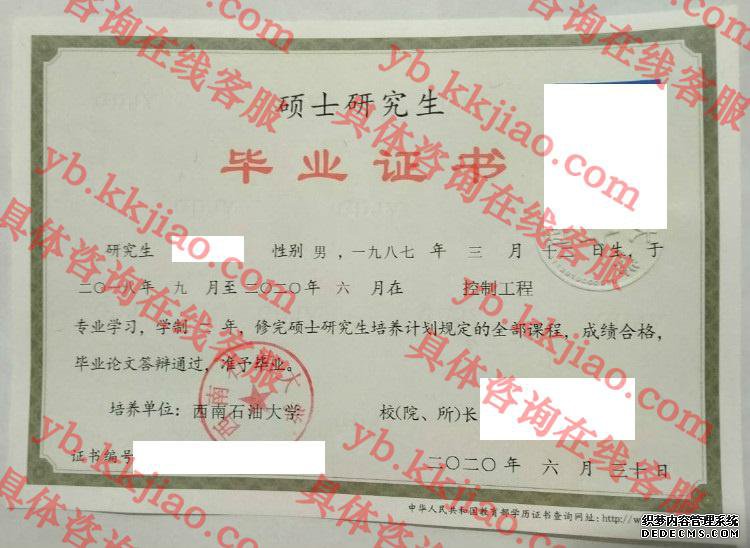 硕士研究生
毕业证书
研究生 性别 男 , 一九八七 年 三 月 十二 日生, 于
二〇一八年 九 月至 二〇二〇年 六 月在 控制工程
专业学习, 学制 二 年, 修完硕士研究生培养计划规定的全部课程, 成绩合格,
毕业论文答辩通过, 准予毕业。
培养单位: 西南石油大学 校(院、所)长
证书编号
二〇二〇年 六 月 三十日
中华人民共和国教育部学历证书查询网址: http://w
yb.kkjiao.com
具体咨询在线客服
yb.kkjiao.com
具体咨询在线客服
yb.kkjiao.com
具体咨询在线客服
yb.kkjiao.com
具体咨询在线客服
织梦内容管理系统
DEDECMS.COM